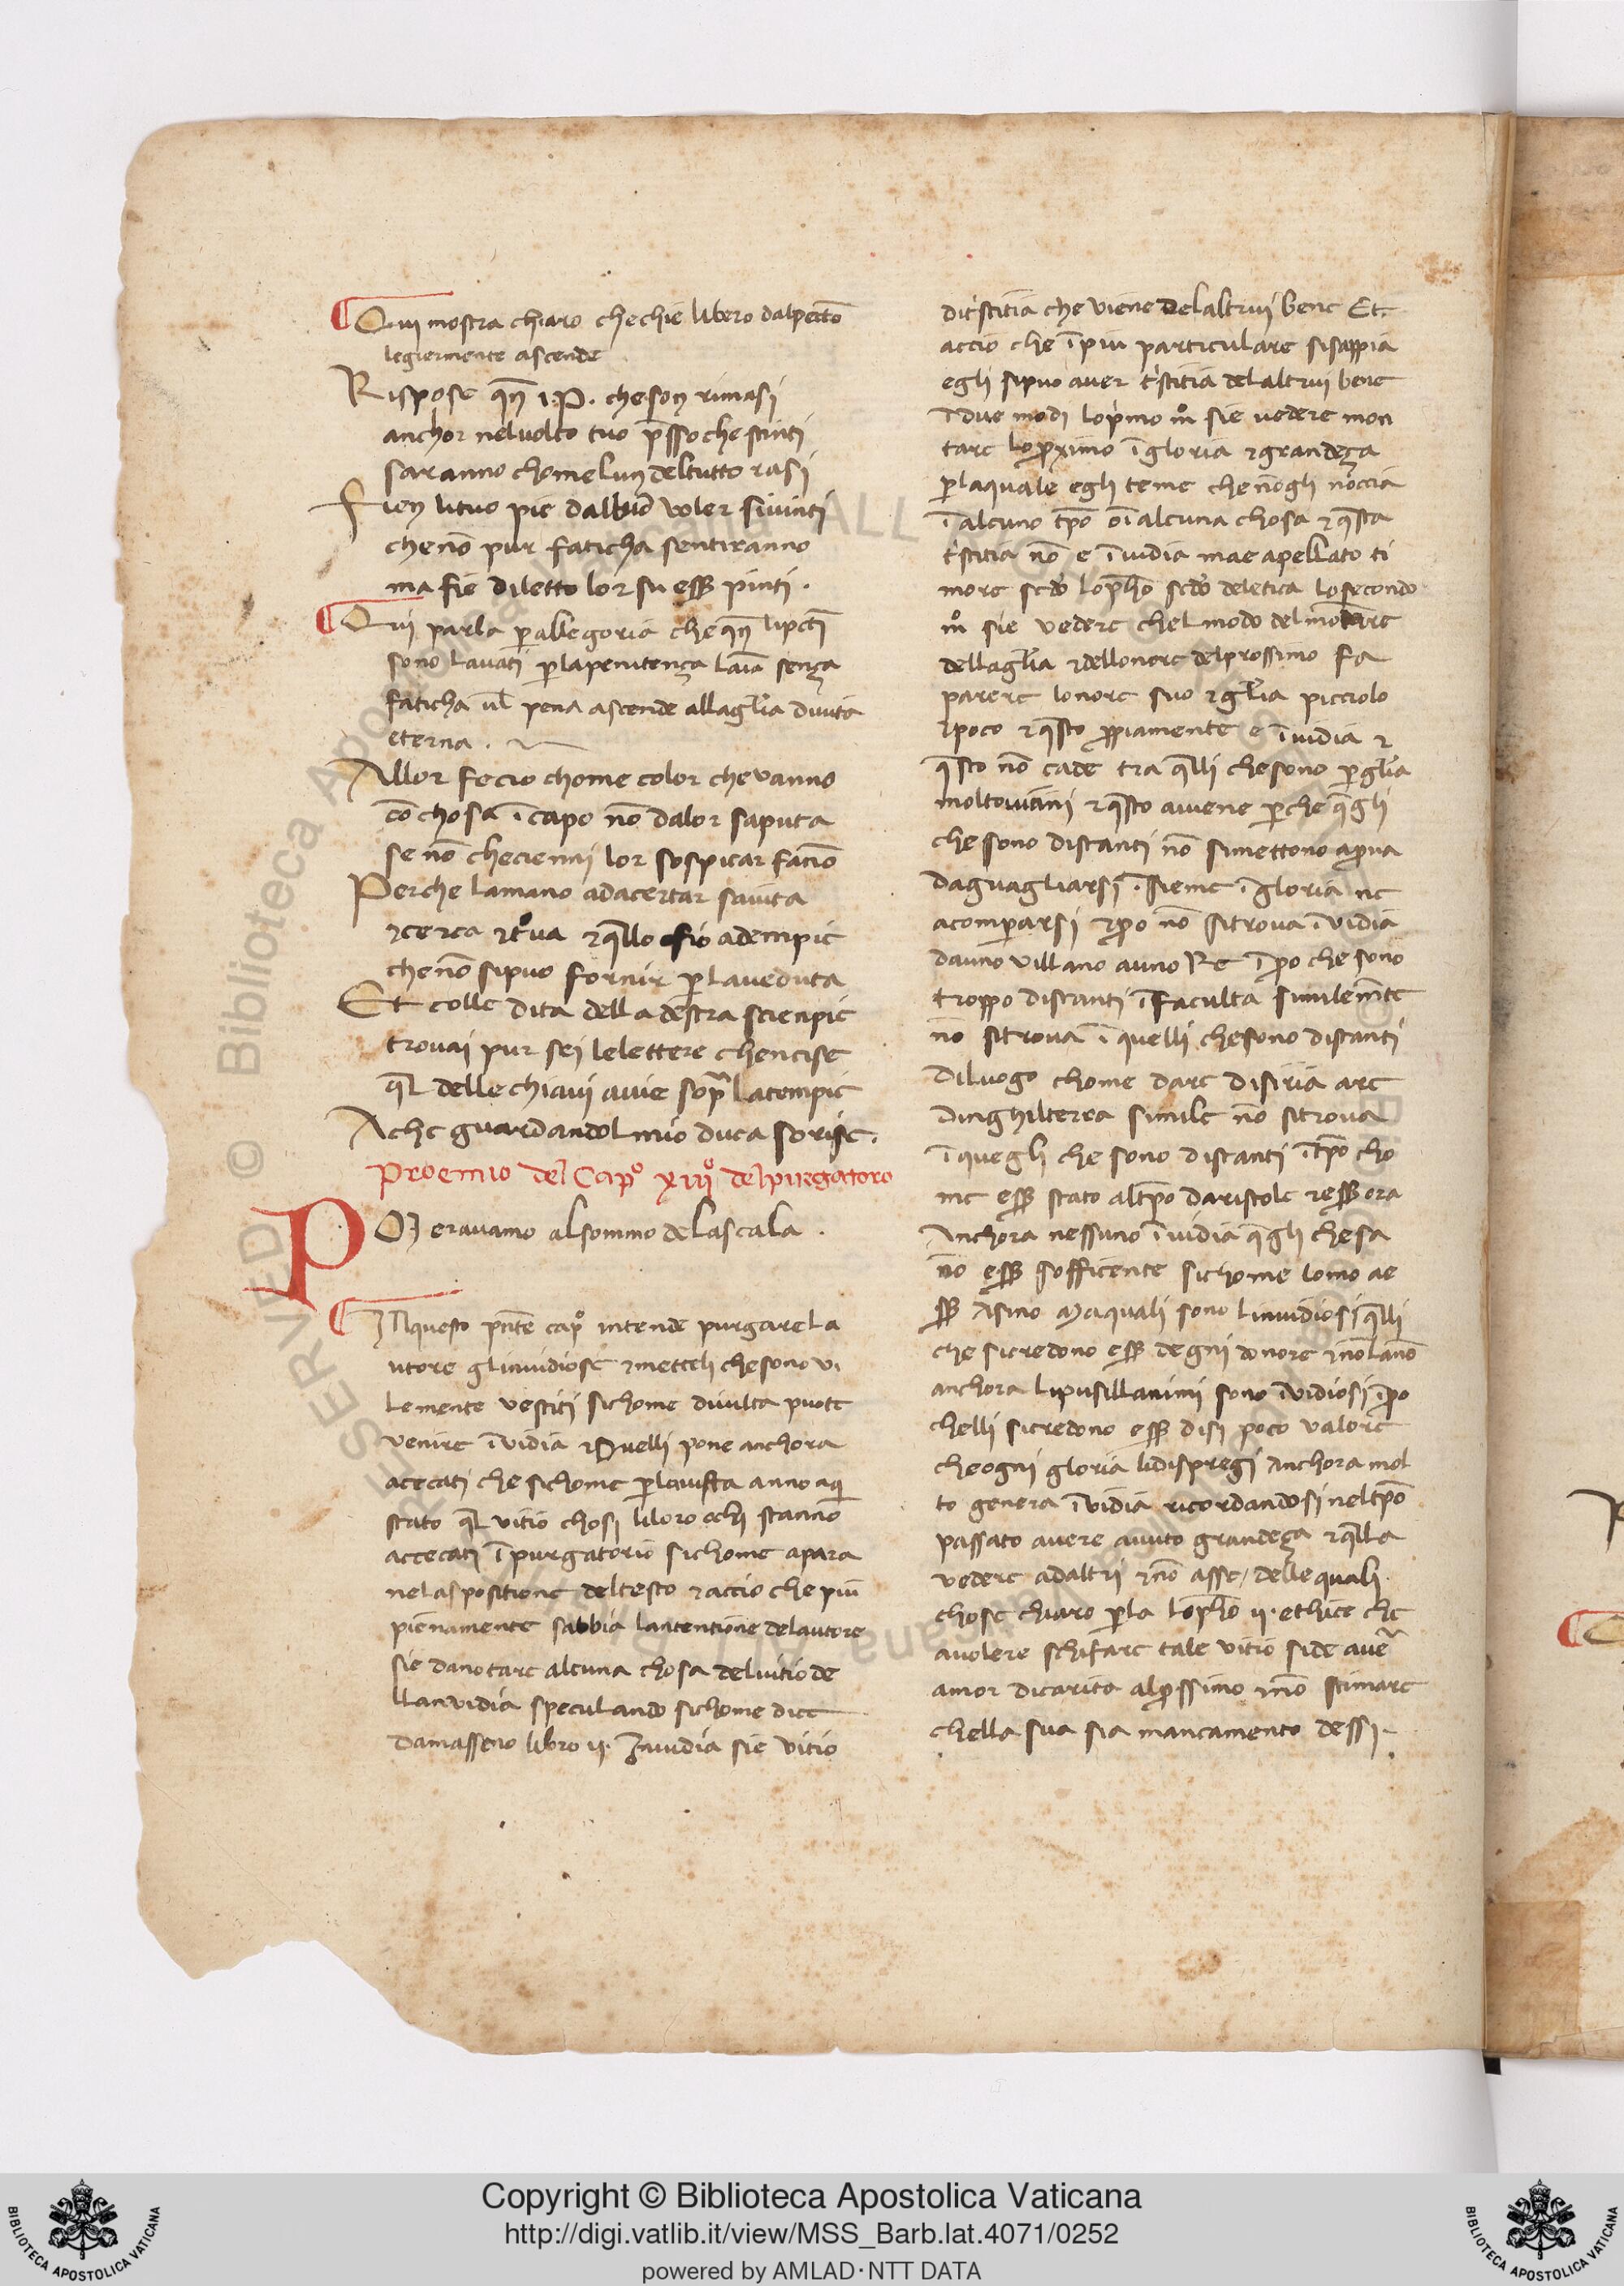 Qui mostra chiaro che chie libero dal pecto
legiermente ascende
Rispose qn̄ i .P. che son rimasi
anchor nel uolto tuo p̄sso che stinti
saranno chome lun del tutto rasi
Fien li tuo pie dal buō voler si uinti
che nō pur faticha sentiranno
ma fie diletto lor su ess̄ pinti .
Qui parla p allegoria che qn̄ li pcti
sono lauati p la penitença laīa sença
faticha ul̄ pena ascende alla glīa di uita
eterna .
Allor fecio chome color che vanno
cō chosa ī capo nō dalor saputa
se nō che cienni lor sospicar fanno
Perche la mano ad acertar saiuta
⁊ cerca ⁊ truua ⁊ qllo oficio adempie
che nō si puo fornir p la veduta
Et colle dita della destra scienpie
trouai pur sei le lettere chencise
ql delle chiaui auie sopra la tempie
A che guardando l mio duca sorise .
Proemio del Capº xiiiº del purgatoro
POI eravamo al sommo de la scala .
IN questo pnte capº intende purgare la
utore gli inuidiose ⁊ metteli che sono vi
lemente vestiti sichome di uilta puote
venire īvidia ⁊ Quelli pone anchora
acecati che sichome p la uista anno aqi
stato ql vitio chosi li loro ochi stanno
accecati ī purgatorio sichome apara
ne la spositione del testo ⁊ accio che piu
pienamente sabbia lantentione del autore
sie da notare alcuna chosa del uitio de
llanvidia speculando sichome dice
Damasseno libro ii. Inuidia sie vitio
di tristitia che viene del altrui bene Et
accio che ī piu particulare si sappia
egli si puo auer tristitia del altrui bene
ī due modi lo primo mº sie uedere mon
tare lo proximo ī gloria ⁊ grandeça
p la quale egli teme che nō gli noccia
ī alcuno tpō o ī alcuna chosa ⁊ qsta
tristitia nō e īuidia ma e apellato ti
more scdo lo pho scdo de letica Lo secondo
mº sie vedere che l modo del montare
della glīa ⁊ dellonore del prossimo fa
parere lonore suo ⁊ glīa picciolo
⁊ poco ⁊ qsto propiamente e īuidia ⁊
qsto nō cade tra qlli che sono p glīa
molto uicini ⁊ qsto auiene pche qgli
che sono distanti nō si mettono a prua
daguagliarsi īsieme ī gloria ne
acomparsi ⁊ po nō si trova īvidia
dauno villano auno Re ī po che sono
troppo distanti ī faculta similemte
nō si trova ī quelli che sono distanti
di luogo chome dare disiria are
dinghilterra simile nō si trova
ī quegli che sono distanti ī tpō cho
me ess̄ stato al tpō daristole ⁊ ess̄ ora
Anchora nessuno īuidia qgli che sa
nō ess̄ sofficente sichome lomo ae
ss̄ asino Ma quali sono linuidiosi qlli
che si credono ess̄ degni donore ⁊ nō lanō
anchora li pusillanimi sono īvidiosi ī po
chelli si credono ess̄ di si poco valore
che ogni gloria li dispregi Anchora mol
to genera īvidia ricordandosi nel tpō
passato avere auuto grandeça ⁊ qlla
vedere ad altri ⁊ nō asse / delle quali
chose chiaro parla lo pho ii. ethice che
a volere schifare tale vitio si de aue
amor di carita al prossimo ⁊ nō stimare
chella sua sia mancamento dessi .
Copyright © Biblioteca Apostolica Vaticana
http://digi.vatlib.it/view/MSS_Barb.lat.4071/0252
powered by AMLAD·NTT DATA
BIBLIOTECA APOSTOLICA VATICANA
BIBLIOTECA APOSTOLICA VATICANA